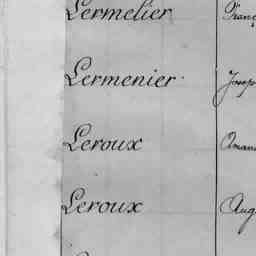 Lermelier Franç
Lermenier Josep
Leroux Aman
Leroux Aug